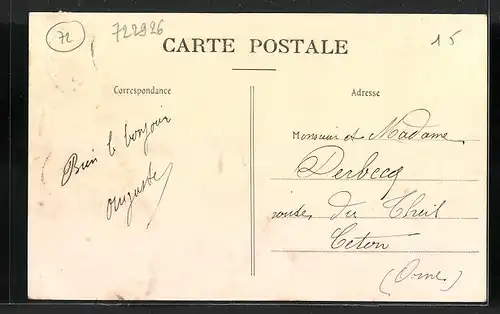 72
722926
15
CARTE POSTALE
Correspondance
Adresse
Bien le bonjour
Auguste
Monsieur et Madame
Derbecq
route du Theil
Ceton
(Orne)